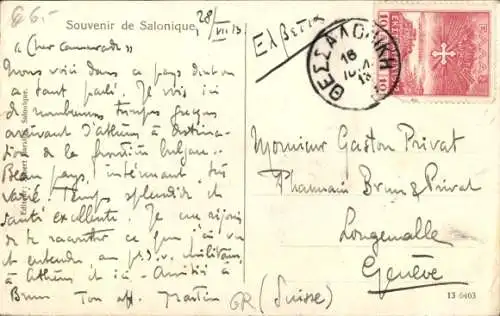 66.-
Souvenir de Salonique.
28/VII/13
"Cher camarade"
Nous voici dans ce pays dont on
a tant parlé. Je vois ici
de nombreuses troupes grecques
arrivant d'Athènes à destina-
tion de la frontière bulgare.
Beau pays, intéressant, très
varié. Temps splendide et
santé excellente. Je me réjouis
de te raconter ce que j'ai vu
et entendu au militaires
à Athènes et ici - Amitiés à
Brun Ton aff. Martin
Editeur: Albert Barzilai, Salonique.
Ελβετία
ΘΕΣΣΑΛΟΝΙΚΗ
16
ΙΟΥΛ
13
10 10
Monsieur Gaston Privat
Pharmacie Brun & Privat
Longemalle
Genève
(Suisse)
GR
13 0403